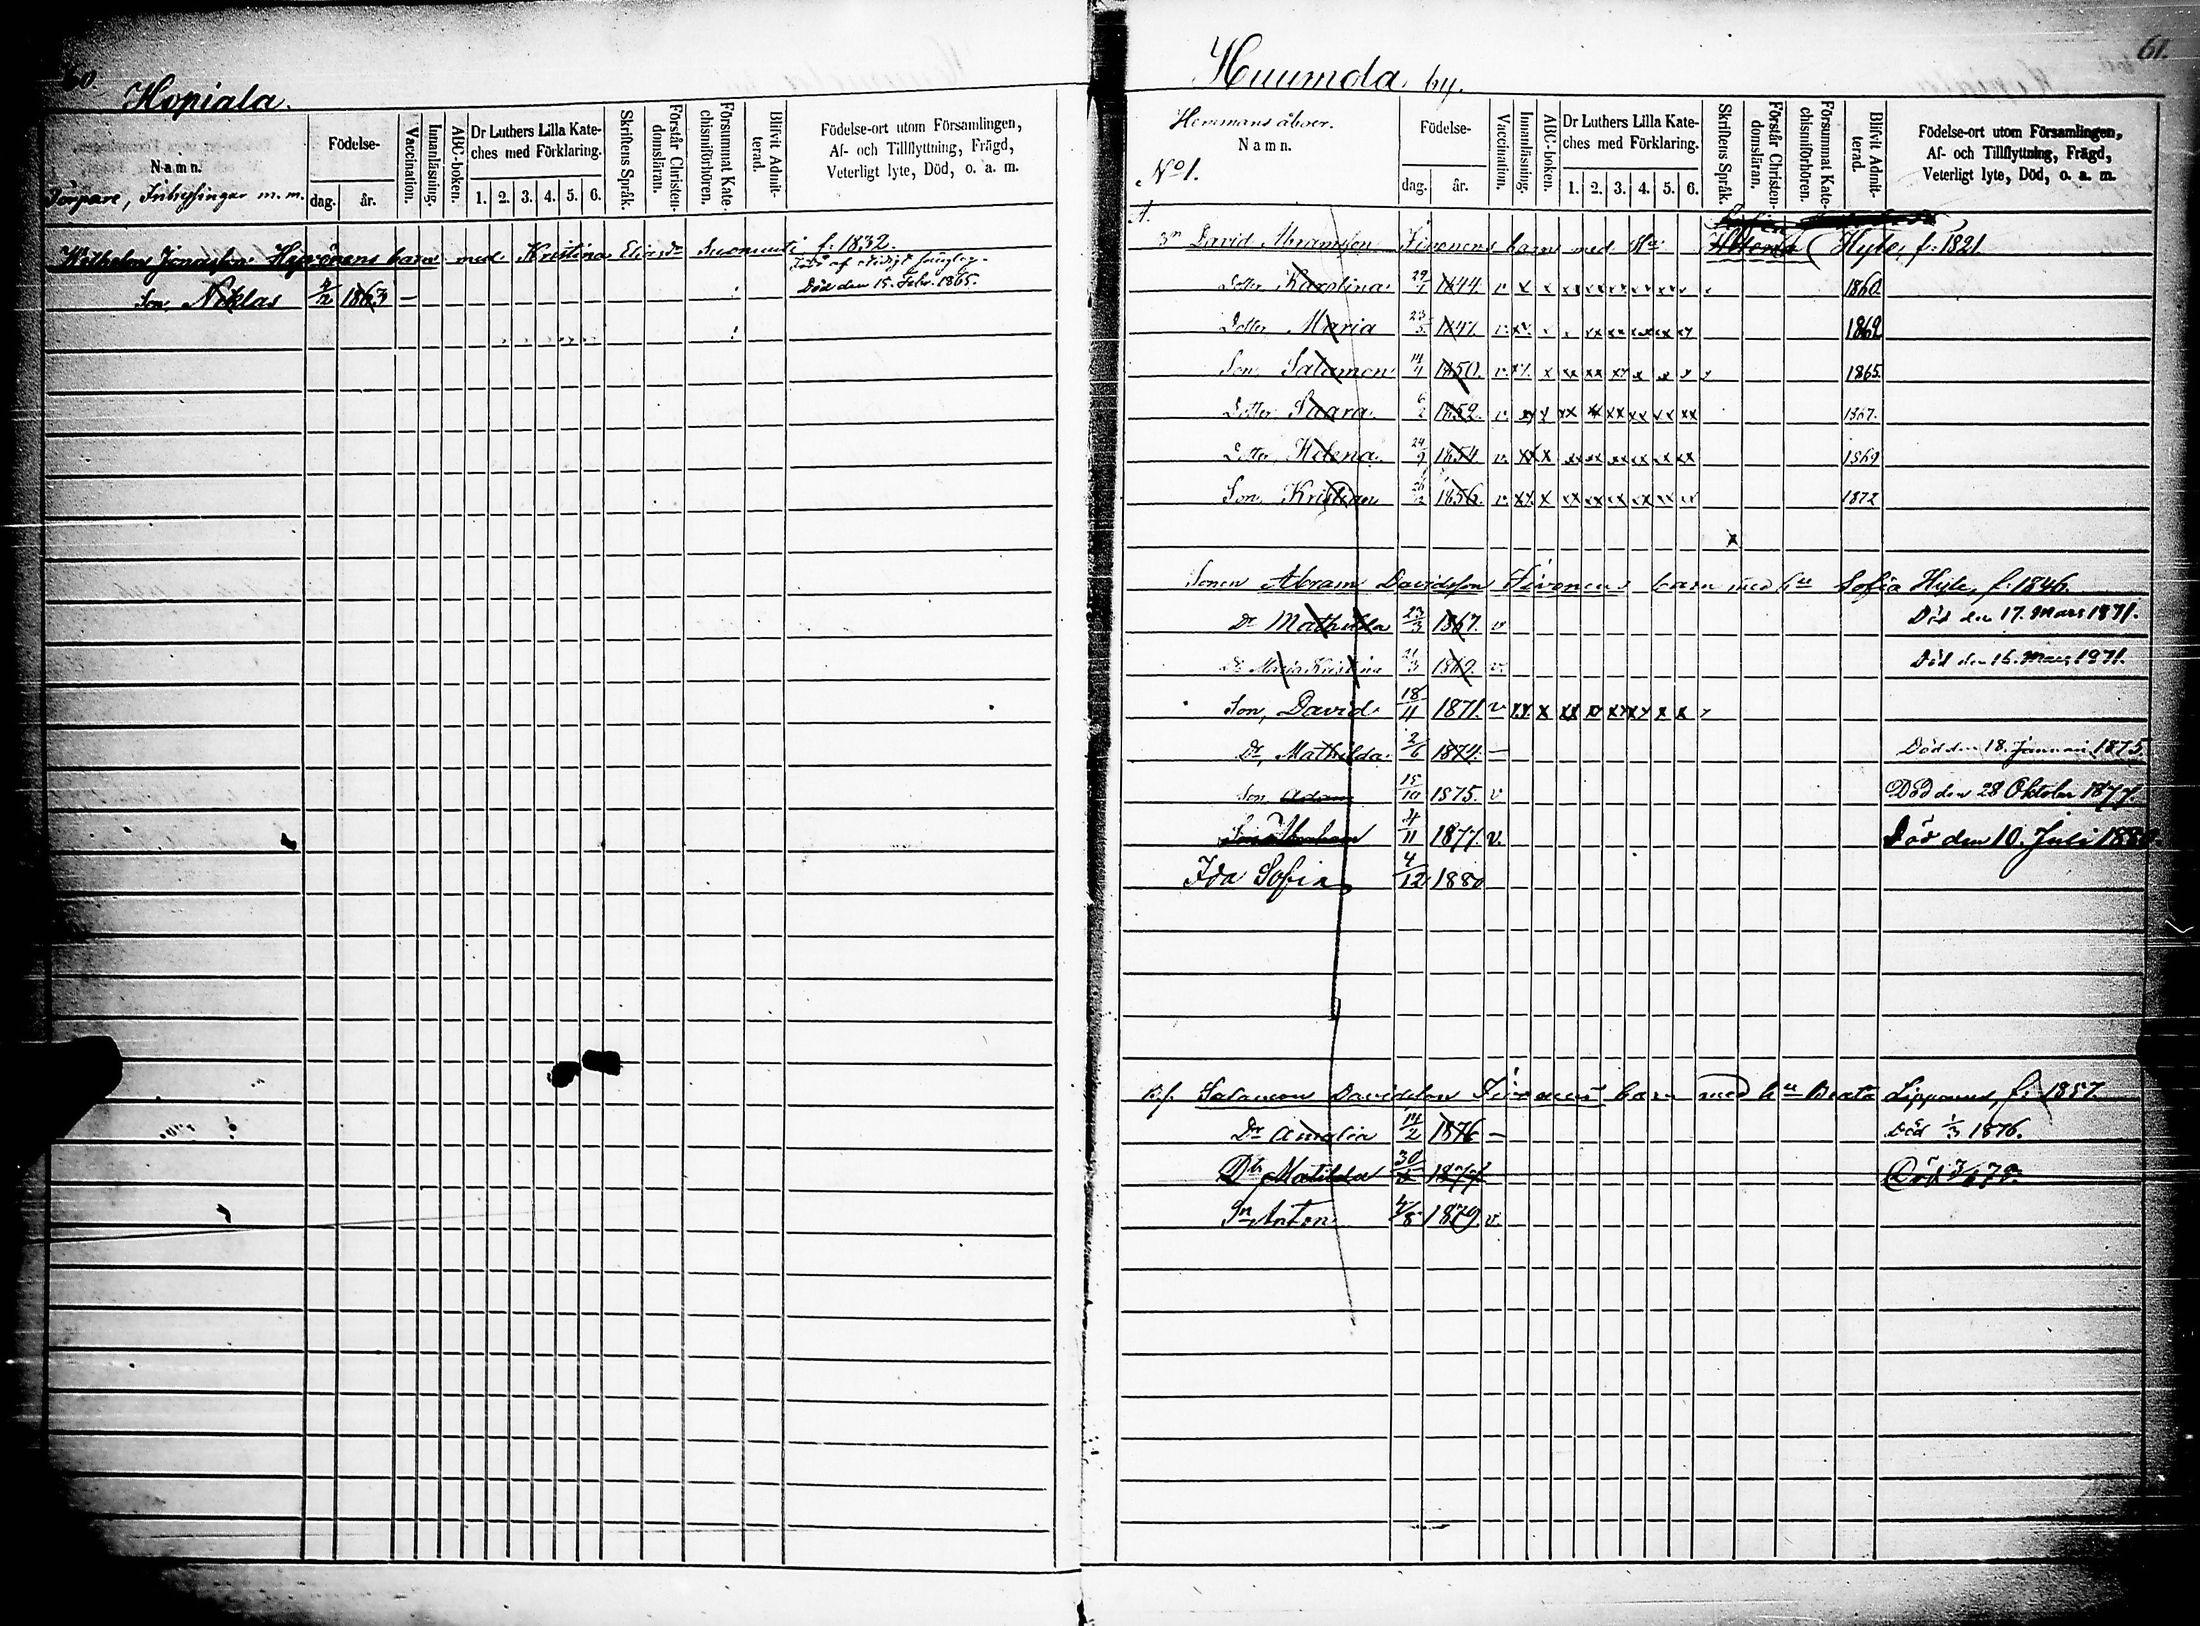 60.
Hopiala.
Namn.
Torpare, Inhysingar m. m.
Födelse-
dag.
år.
Vaccination.
Innanläsning.
ABC-boken.
Dr Luthers Lilla Kate-
ches med Förklaring.
1. 2. 3. 4. 5. 6.
Skriftens Språk.
Förstår Christen-
domsläran.
Försummat Kate-
chismiförhören.
Blifvit Admit-
terad.
Födelse-ort utom Församlingen,
Af- och Tillflyttning, Frägd,
Veterligt lyte, Död, o. a. m.
Wilhelm Jonasson barn med Kristina Eliasdr Suomuti f. 1832.
Son, Niklas 4/2 1863 — Död den 15. Febr. 1865.
61.
Huumola by.
Hemmans åboer.
Namn.
No 1.
Födelse-
dag.
år.
Vaccination.
Innanläsning.
ABC-boken.
Dr Luthers Lilla Kate-
ches med Förklaring.
1. 2. 3. 4. 5. 6.
Skriftens Språk.
Förstår Christen-
domsläran.
Försummat Kate-
chismiförhören.
Blifvit Admit-
terad.
Födelse-ort utom Församlingen,
Af- och Tillflyttning, Frägd,
Veterligt lyte, Död, o. a. m.
A.
David Abramsson Iivonens barn med Hu Helena Hyle, f. 1821.
Dotter Karolina 29/1 1844. v x x xx xx xx xx xx x 1860.
Dotter Maria 23/5 1847. v. xx. x x xx xx xx xx xy 1862
Son, Salomon 14/4 1850. v. xx x xx xx xx x x x 1865.
Dotter Saara 6/2 1852. v. xx x xx xx xx xx xx xx 1867.
Dotter, Helena 24/9 1854. v. xx x xx xx xx xx xx xx 1869
Son, Kristian 26/2 1856. v. xx x xx xx xx xx xx xx 1872
x
Sonen Abram Davidsson Iivonens barn med hu Sofia Hyle, f. 1846.
Dr Mathilda 23/3 1867. v Död den 17. Mars 1871.
Dr Maria Kristina 21/3 1869. v. Död den 16. Mars 1871.
Son, David 18/11 1871. v xx x xx xx xx xy x x
Dr, Mathilda 2/6 1874. — Död den 18. Januari 1875
Son, Adam 15/10 1875. v Död den 28 Oktober 1877.
Son Abraham 4/11 1877. v. Död den 10. Juli
Ida Sofia 4/12 1880
Salamon Davidson Iivonens barn med hu Beata Lipponens, f. 1857.
Dr Amalia 14/2 1876 — Död 1/3 1876.
Dr Matilda 30/ 1877
Sn Anton 4/8 1879. v.